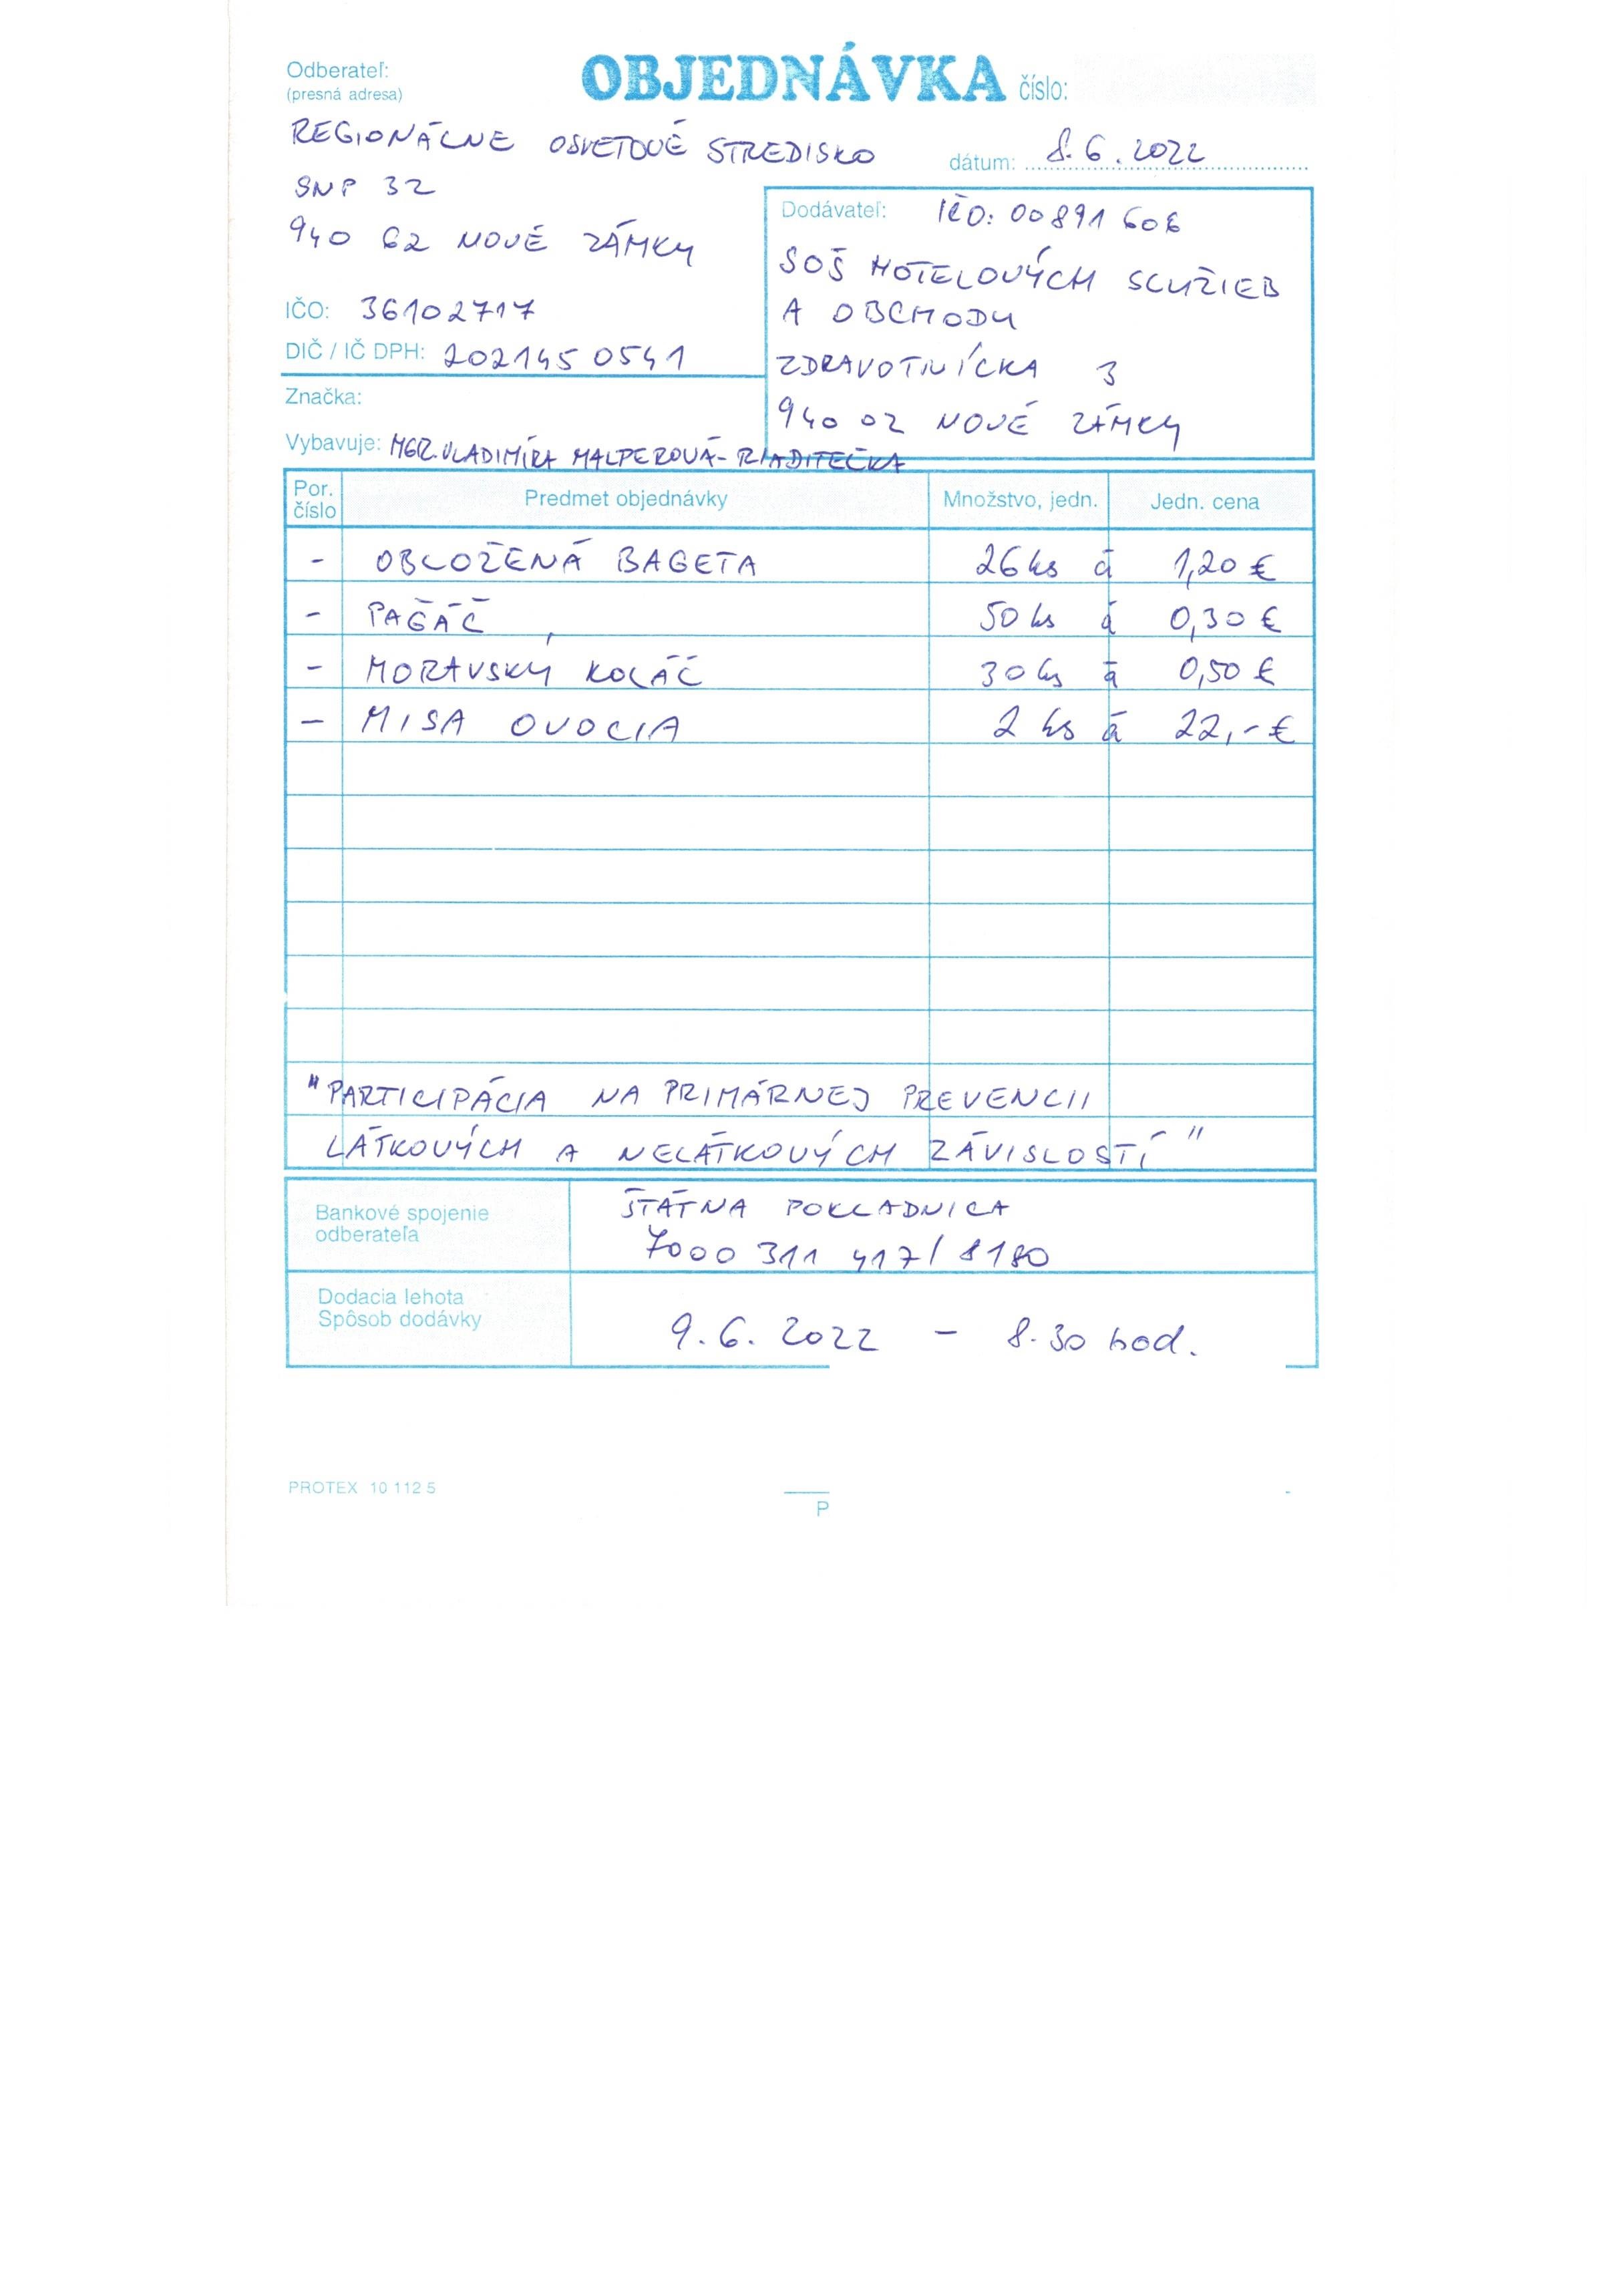 Odberateľ:
(presná adresa)
OBJEDNÁVKA číslo:
REGIONÁLNE OSVETOVÉ STREDISKO
dátum: 8.6.2022
SNP 32
940 62 NOVÉ ZÁMKY
IČO: 36102717
DIČ / IČ DPH: 202145 0541
Značka:
Vybavuje: MGR. VLADIMÍRA MALPEROVÁ - RIADITEĽKA
Dodávateľ: IČO: 00891 606
SOŠ HOTELOVÝCH SLUŽIEB
A OBCHODU
ZDRAVOTNÍCKA 3
940 02 NOVÉ ZÁMKY
Por. číslo Predmet objednávky Množstvo, jedn. Jedn. cena
- OBLOŽENÁ BAGETA 26 ks á 1,20 €
- PAGÁČ 50 ks á 0,30 €
- MORAVSKÝ KOLÁČ 30 ks á 0,50 €
- MISA OVOCIA 2 ks á 22,- €
"PARTICIPÁCIA NA PRIMÁRNEJ PREVENCII
LÁTKOVÝCH A NELÁTKOVÝCH ZÁVISLOSTÍ"
Bankové spojenie
odberateľa
ŠTÁTNA POKLADNICA
7000 311 417/8180
Dodacia lehota
Spôsob dodávky
9.6.2022 - 8.30 hod.
PROTEX 10 112 5
P